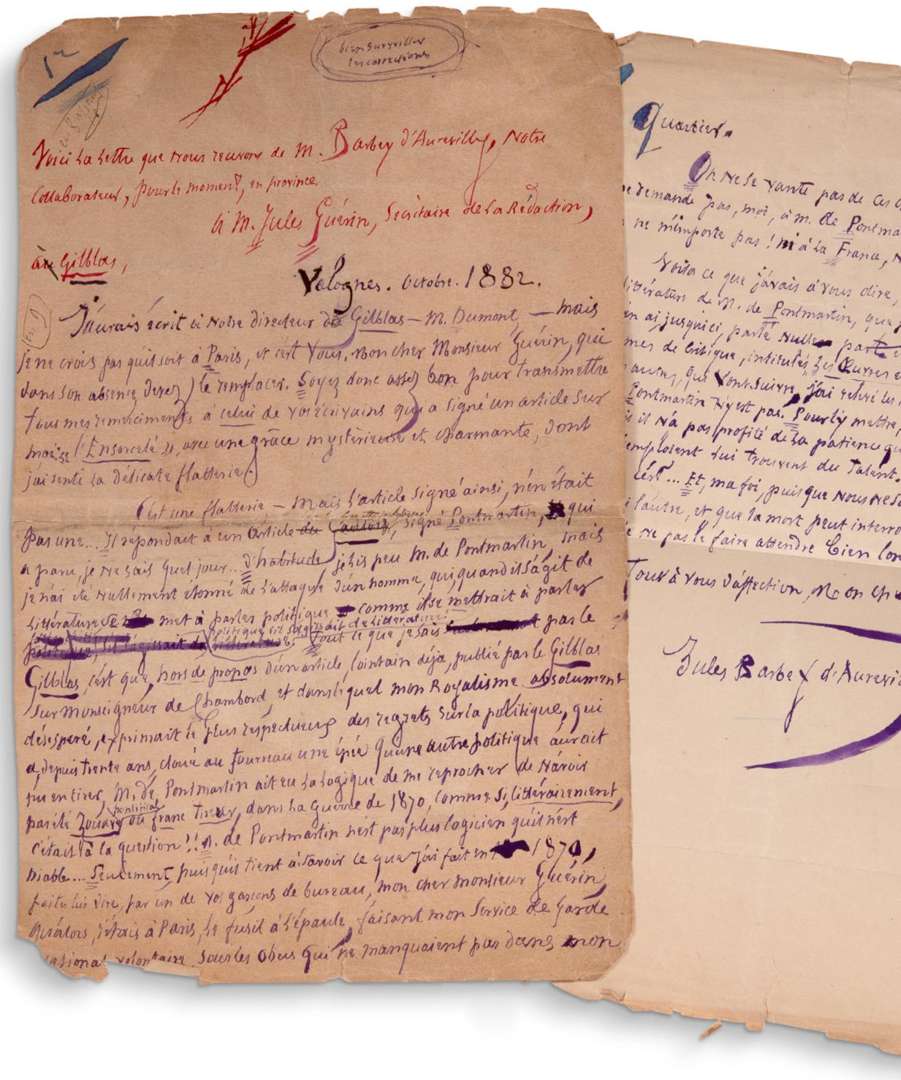 bien surveiller
les corrections
Voici la lettre que nous recevons de M. Barbey d'Aurevilly, Notre
Collaborateur, pour le moment, en province
à M. Jules Guérin, Secrétaire de la Rédaction,
au Gilblas,
Valognes. Octobre. 1882.
J'aurais écrit à Notre directeur du Gilblas – M. Dumont – mais
je ne crois pas qu'il soit à Paris, et c'est Vous, mon cher Monsieur Guérin, qui
dans son absence devez le remplacer. Soyez donc assez bon pour transmettre
tous mes remerciments à celui de vos écrivains qui a signé un article sur
moi : « l'Ensorcelé », avec une grâce mystérieuse et charmante, dont
j'ai senti la délicate flatterie.
C'est une flatterie – Mais l'article signé ainsi, n'en était
pas une... Il répondait à un Article du Gaulois, signé Pontmartin, qui
a paru, je ne sais quel jour... D'habitude, je lis peu M. de Pontmartin, mais
je n'ai été nullement étonné de l'attaque d'un homme, qui quand il s'agit de
Littérature se met à parler politique comme il se mettrait à parler
politique s'il s'agissait de littérature. Tout ce que je sais par le
Gilblas, c'est que, hors de propos d'un article lointain déjà, publié par le Gilblas
sur Monseigneur de Chambord, et dans lequel mon Royalisme absolument
désespéré, exprimait le plus respectueux des regrets sur la politique, qui
a, depuis trente ans, cloué au fourreau une épée qu'une autre politique aurait
pu en tirer, M. de Pontmartin ait eu la logique de me reprocher de n'avoir
pas été Zouave pontifical ou franc tireur, dans la Guerre de 1870, comme si, littérairement,
c'était là la question !! M. de Pontmartin n'est pas plus logicien qu'il n'est
Seulement, puisqu'il tient à savoir ce que j'ai fait en 1870,
faites lui dire, par un de vos garçons de bureau, mon cher Monsieur Guérin,
qu'alors, j'étais à Paris, le fusil à l'épaule, faisant mon Service de Garde
national volontaire sous les Obus qui ne manquaient pas dans mon
Quartier.
On ne se vante pas de ces
demande pas, moi, à M. de Pontmartin
ne m'importe pas ! ni à la France,
Voilà ce que j'avais à vous dire,
littérature de M. de Pontmartin, que
en ai jusqu'ici, parlé Nulle part
de Critique, intitulés Les Œuvres
autres, qui Vont Suivre, j'ai relevé les
Pontmartin n'y est pas. Pour l'y mettre,
il n'a pas profité de la patience
lui trouvent du Talent.
c'est... Et, ma foi, puisque nous ne
l'autre, et que la mort peut
ne pas le faire attendre bien
Tout à vous d'affection, Mon
Jules Barbey d'Aurevilly